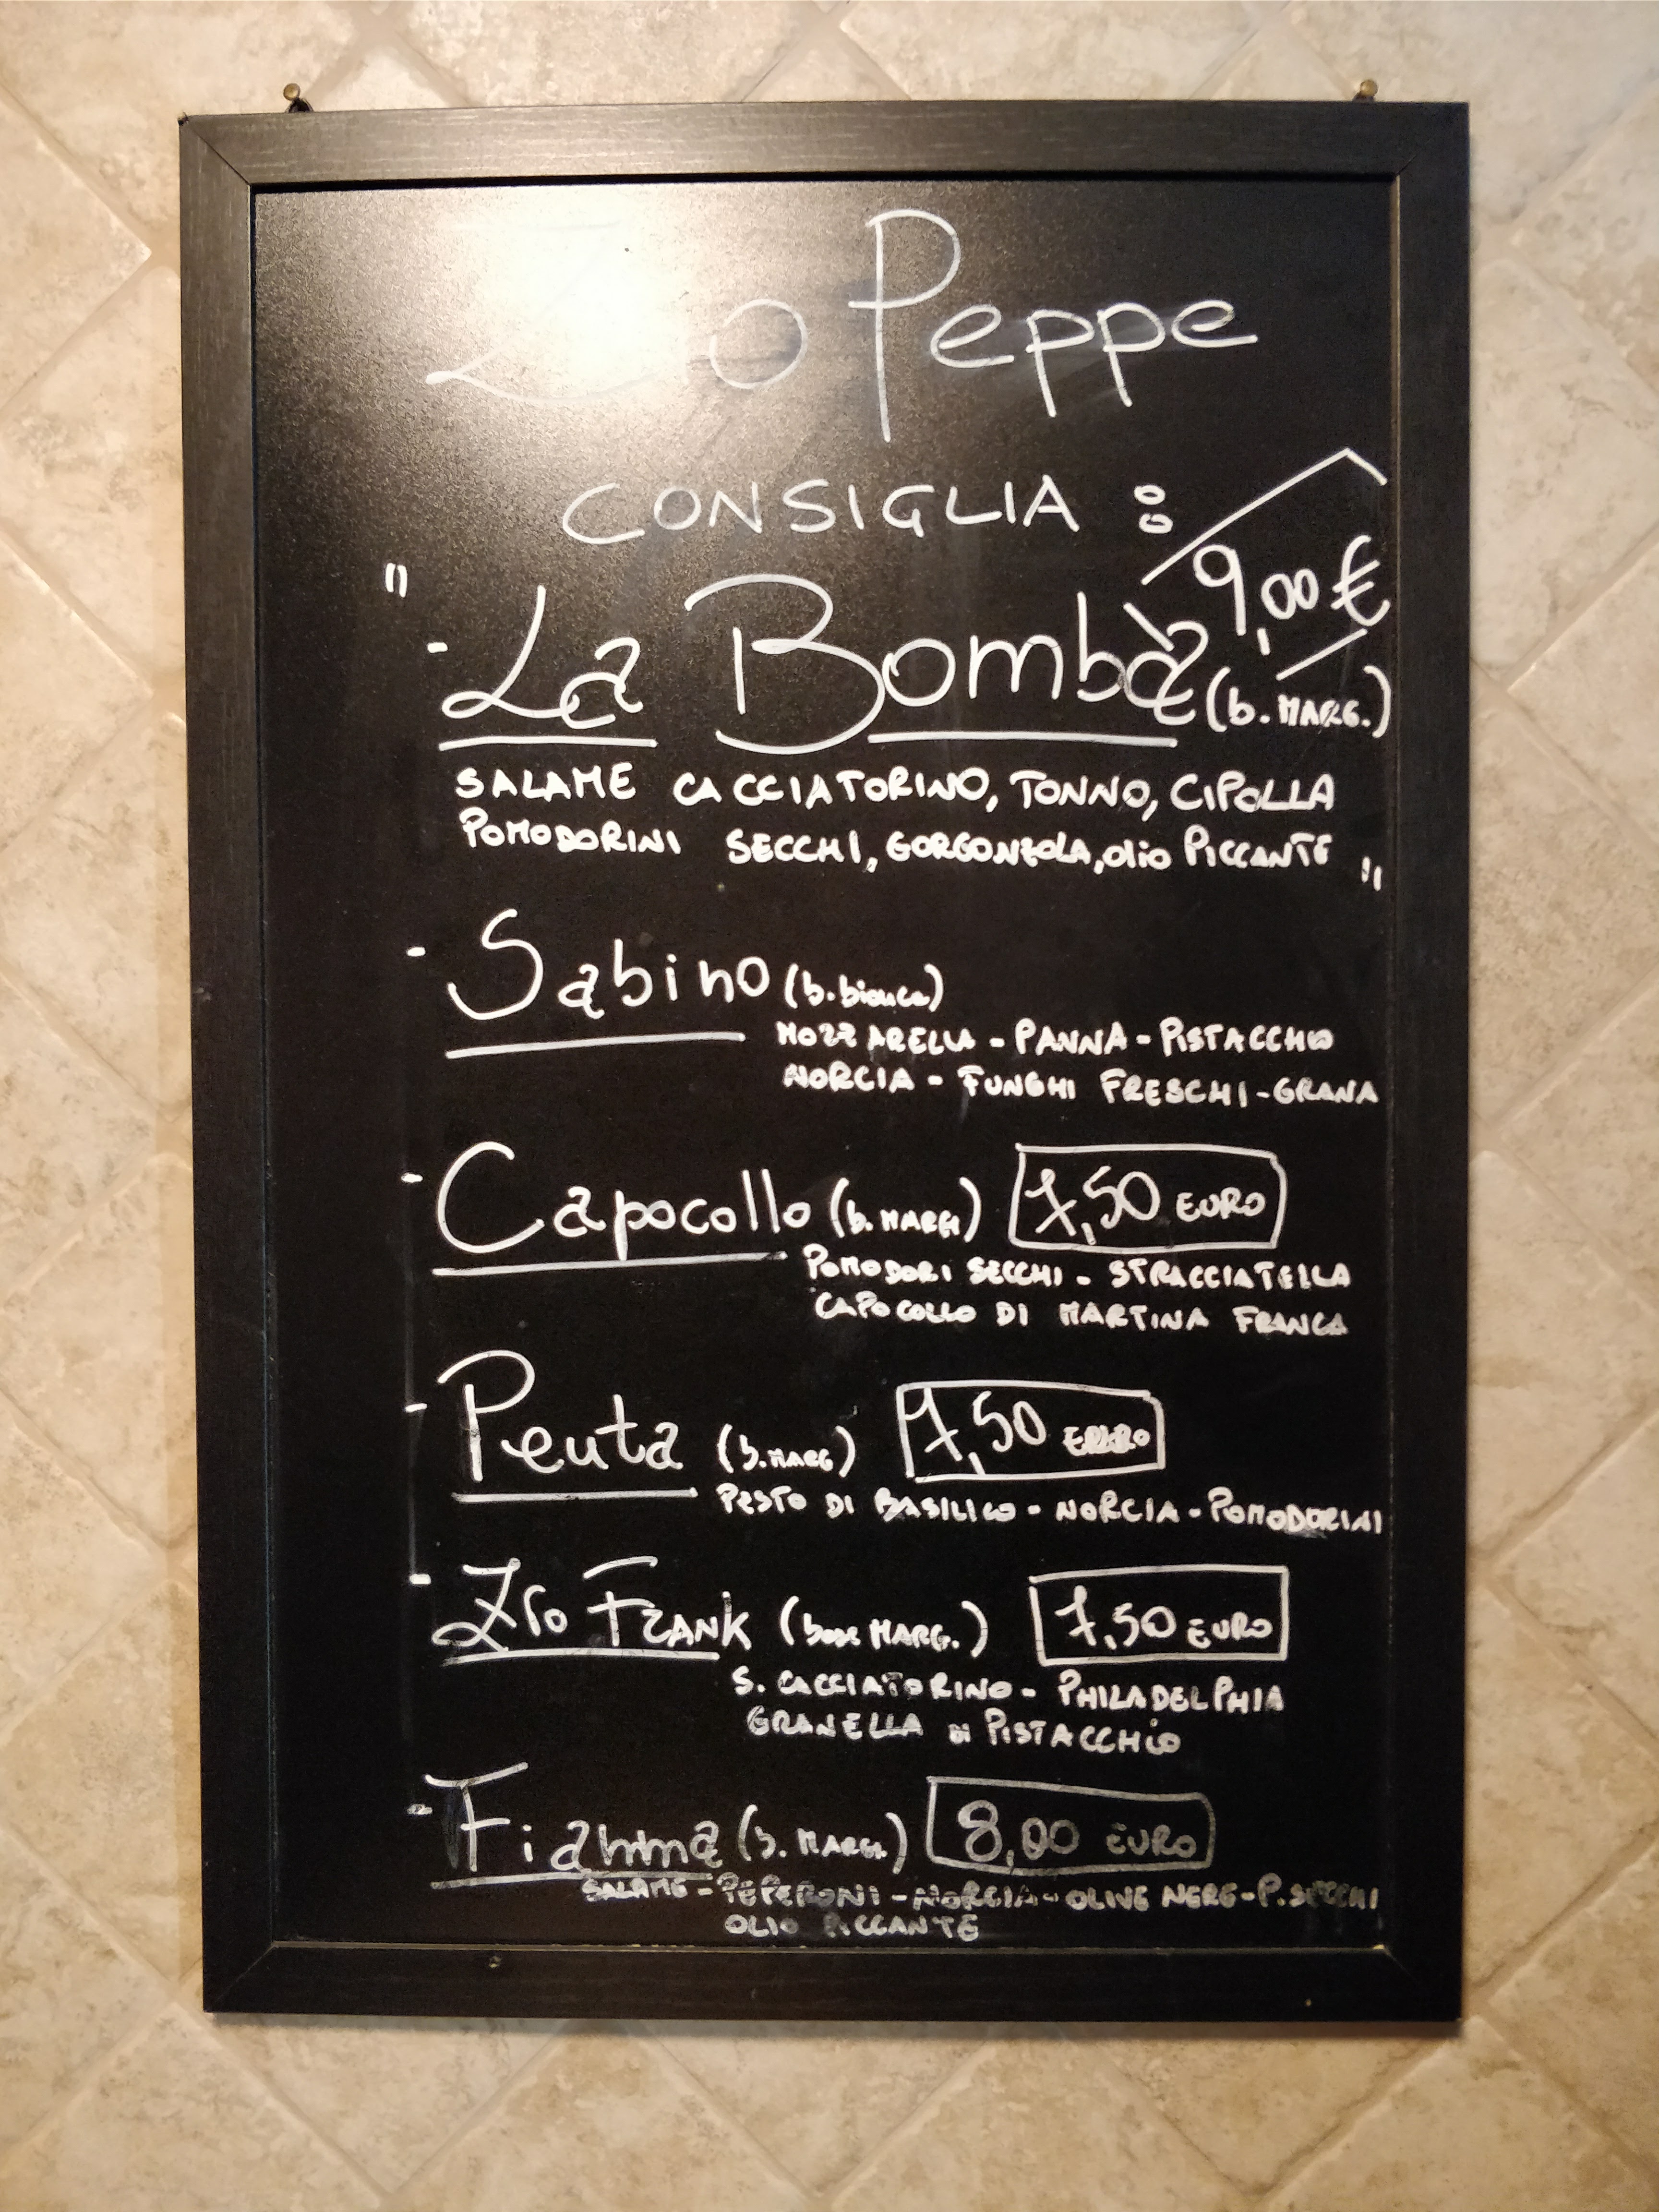 Zio Peppe
CONSIGLIA :
9,00 €
"
- La Bomba (b. MARG.)
SALAME CACCIATORINO, TONNO, CIPOLLA
POMODORINI SECCHI, GORGONZOLA, olio PICCANTE "
- Sabino (b. bianca)
MOZZARELLA - PANNA - PISTACCHIO
NORCIA - FUNGHI FRESCHI - GRANA
- Capocollo (b. MARG) 7,50 EURO
POMODORI SECCHI - STRACCIATELLA
CAPOCOLLO DI MARTINA FRANCA
- Peuta (b. MARG) 7,50 EURO
PESTO DI BASILICO - NORCIA - POMODORINI
- Zio FRANK (base MARG.) 7,50 EURO
S. CACCIATORINO - PHILADELPHIA
GRANELLA DI PISTACCHIO
- Fiamma (b. MARG.) 8,00 EURO
SALAME - PEPERONI - NORCIA - OLIVE NERE - P. SECCHI
OLIO PICCANTE